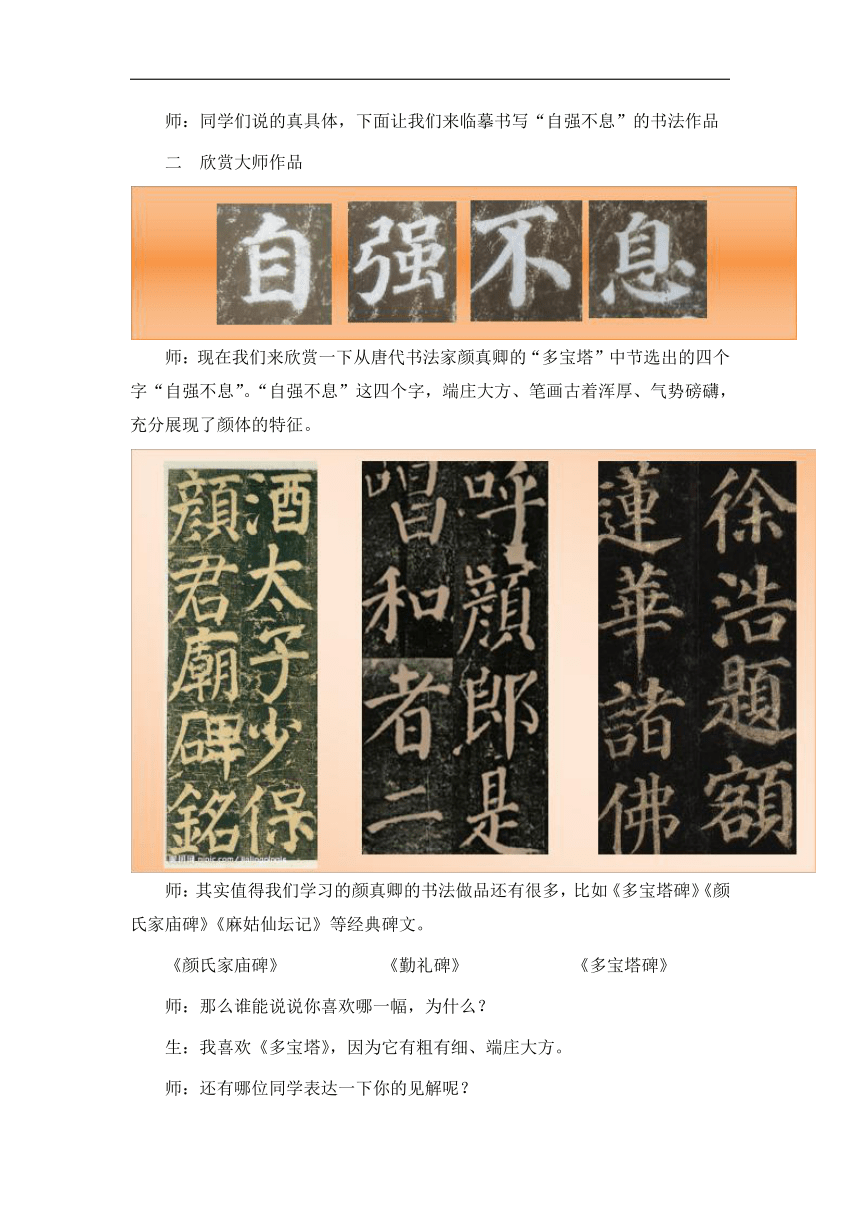 师：同学们说的真具体，下面让我们来临摹书写“自强不息”的书法作品
二　欣赏大师作品
自强不息
师：现在我们来欣赏一下从唐代书法家颜真卿的“多宝塔”中节选出的四个
字“自强不息”。“自强不息”这四个字，端庄大方、笔画古着浑厚、气势磅礴，
充分展现了颜体的特征。
酒太子少保
顔君廟碑銘
呼顔郎是
唱和者二
徐浩題額
蓮華諸佛
师：其实值得我们学习的颜真卿的书法做品还有很多，比如《多宝塔碑》《颜
氏家庙碑》《麻姑仙坛记》等经典碑文。
《颜氏家庙碑》　　　《勤礼碑》　　　《多宝塔碑》
师：那么谁能说说你喜欢哪一幅，为什么？
生：我喜欢《多宝塔》，因为它有粗有细、端庄大方。
师：还有哪位同学表达一下你的见解呢？